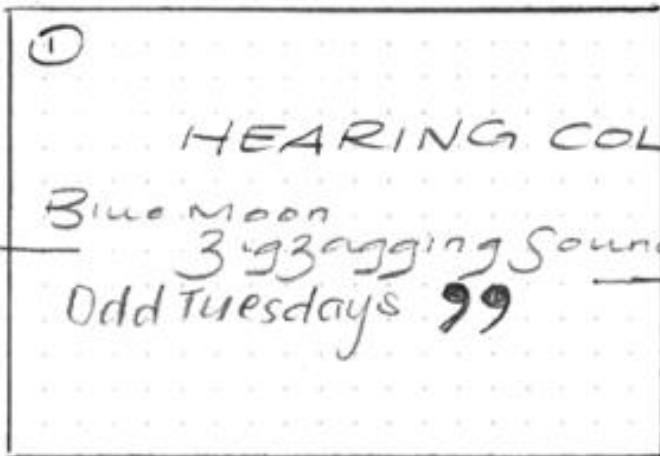 ①
HEARING COL
Blue Moon
ZigZagging Soun
Odd Tuesdays ❟❟